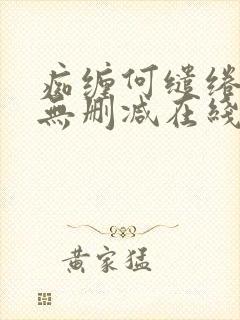 痴缠何缱绻
無删减在綫
黄家猛